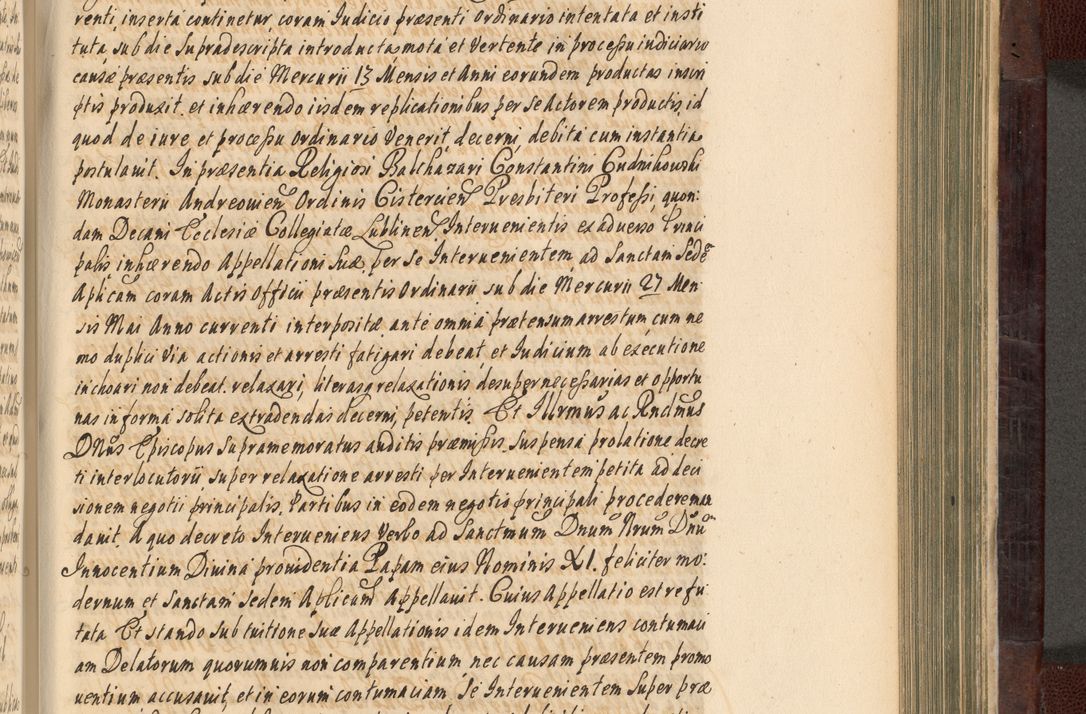 renti, inserta continetur coram Iudicio præsenti ordinario intentata et insti
tuta, sub die supradescripta introducta, mota et Vertente in processu iudiciario
causæ præsentis sub die Mercurii 13 Mensis et Anni eorundem productas inscri
ptis produxit. et inhærendo iisdem replicationibus per se Actorem productis, id
quod de iure et processu ordinario Venerit decerni, debita cum instantia
postulavit. In præsentia Religiosi Balthazari Constantini Cudnikowski
Monasterii Andreouien Ordinis Cistercien Presbiteri Professi, quon:
dam Decani Ecclesiæ Collegiatæ Lublinen Interuenientis ex aduerso Princi
palis, inhærendo Appellationi suæ, per se Interuenientem, ad Sanctam Sedē
Aplicam coram Actis Officii præsentis Ordinarii sub die Mercurii 27 Men
sis Mai Anno currenti interpositæ ante omnia prætensum arrestum, cum ne
mo duplici via actionis et arresti fatigari debeat, et Iudicium ab executione
inchoari non debeat, relaxari, literasq relaxationis desuper necessarias et opportu
nas in forma solita extradendas decerni, petentis. Et Illrmus ac Rndmus
DNus Episcopus supramemoratus auditis præmissis, suspensa prolatione decre
ti interlocutorii super relaxatione arresti per Interuenientem petita ad deci
sionem negotii principalis, Partibus in eodem negotio principali procedere man
dauit. A quo decreto Interueniens Verbo ad Sanctmum Dnum Nrum Dnū
Innocentium Divina prouidentia Papam eius Nominis XI. feliciter mo:
dernum et Sanctam Sedem Aplicam Appellauit. Cuius Appellatio est refu
tata Et stando sub tuitione suæ Appellationis idem Interueniens contumaci
am Delatorum quorumuis non comparentium nec causam præsentem promo
uentium accusauit, et in eorum contumaciam Se Interuenientem super præ